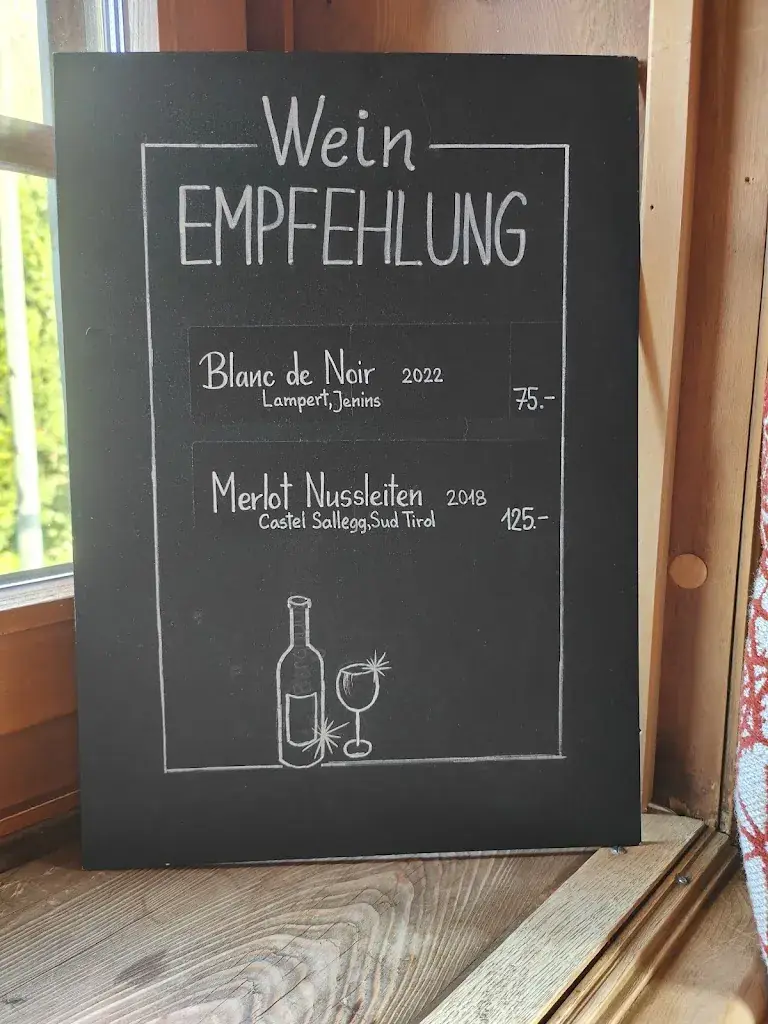 Wein
EMPFEHLUNG
Blanc de Noir 2022
Lampert, Jenins 75.-
Merlot Nussleiten 2018
Castel Sallegg, Sud Tirol 125.-